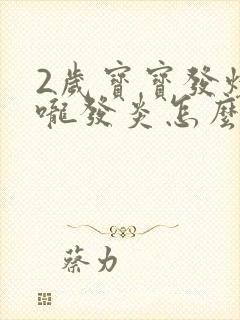 2歲寶寶發燒
嚨發炎怎麼
蔡力